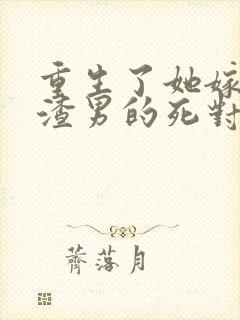 重生了她嫁
渣男的死對
薺落月